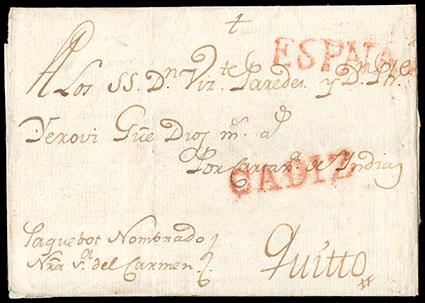 +
ESPNA
A Los SS. Dn. Viz.te Paredes. y Dn. Jph.e
Verovi Gũe Dios m.s a.s
Por Cartax.a de Indias
CADIZ
Paquebot Nombrado
Nra S.a del Carmen
Quitto